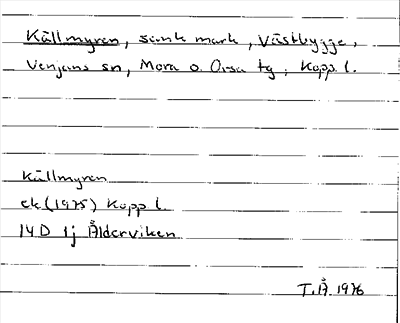 Källmyren, sank mark, Västbygge,
Venjans sn, Mora o. Orsa tg, Kopp. l.
Källmyren
ek (1975) Kopp l.
14D 1j Ålderviken
T.Å. 1976